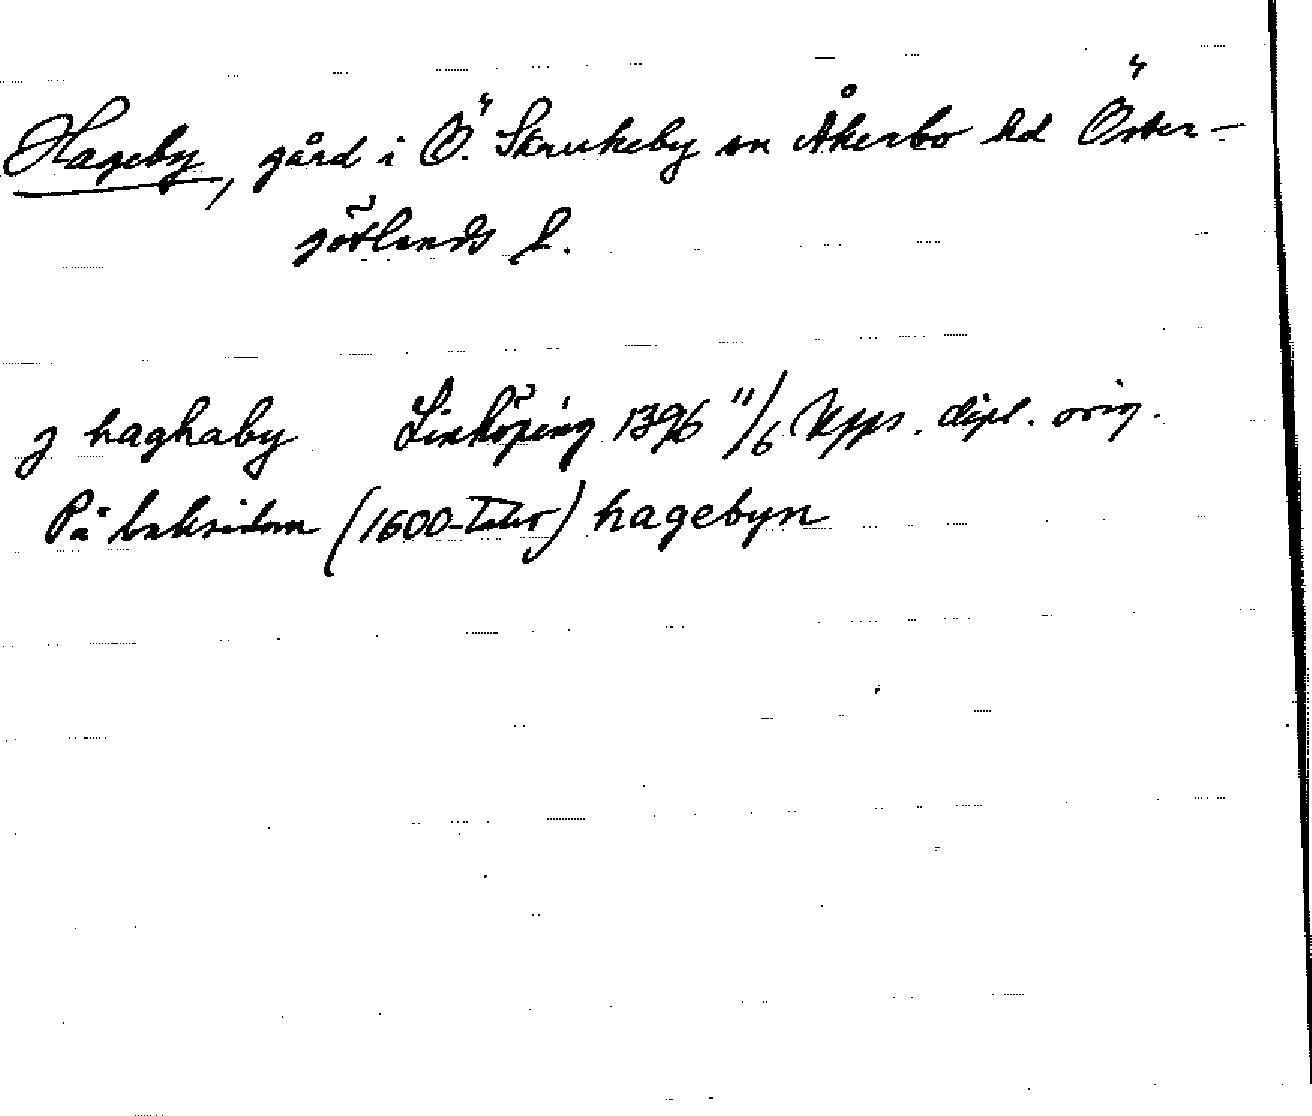 Hageby, gård i Ö. Skrukeby sn Åkerbo hd Öster-
götlands l.
j haghaby Linköping 1396 11/6 Upps. dipl. orig.
På baksidan (1600-talet) hagebyn